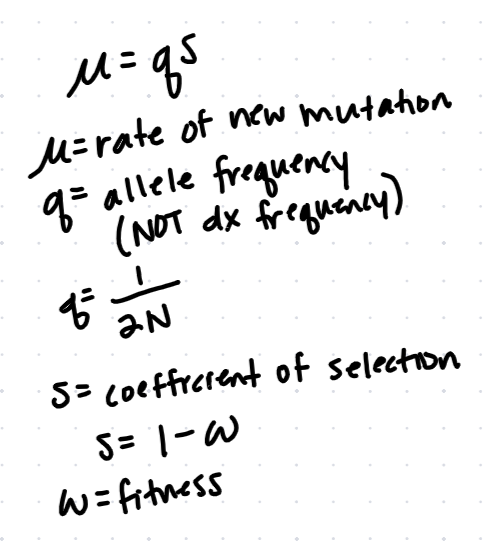 μ = qs
μ = rate of new mutation
q = allele frequency
(NOT dx frequency)
q = 1/2N
s = coefficient of selection
s = 1 - w
w = fitness